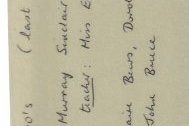 0's (last
Murray Sinclair
teacher: Miss E
aire Bews, Doro
John Bruce